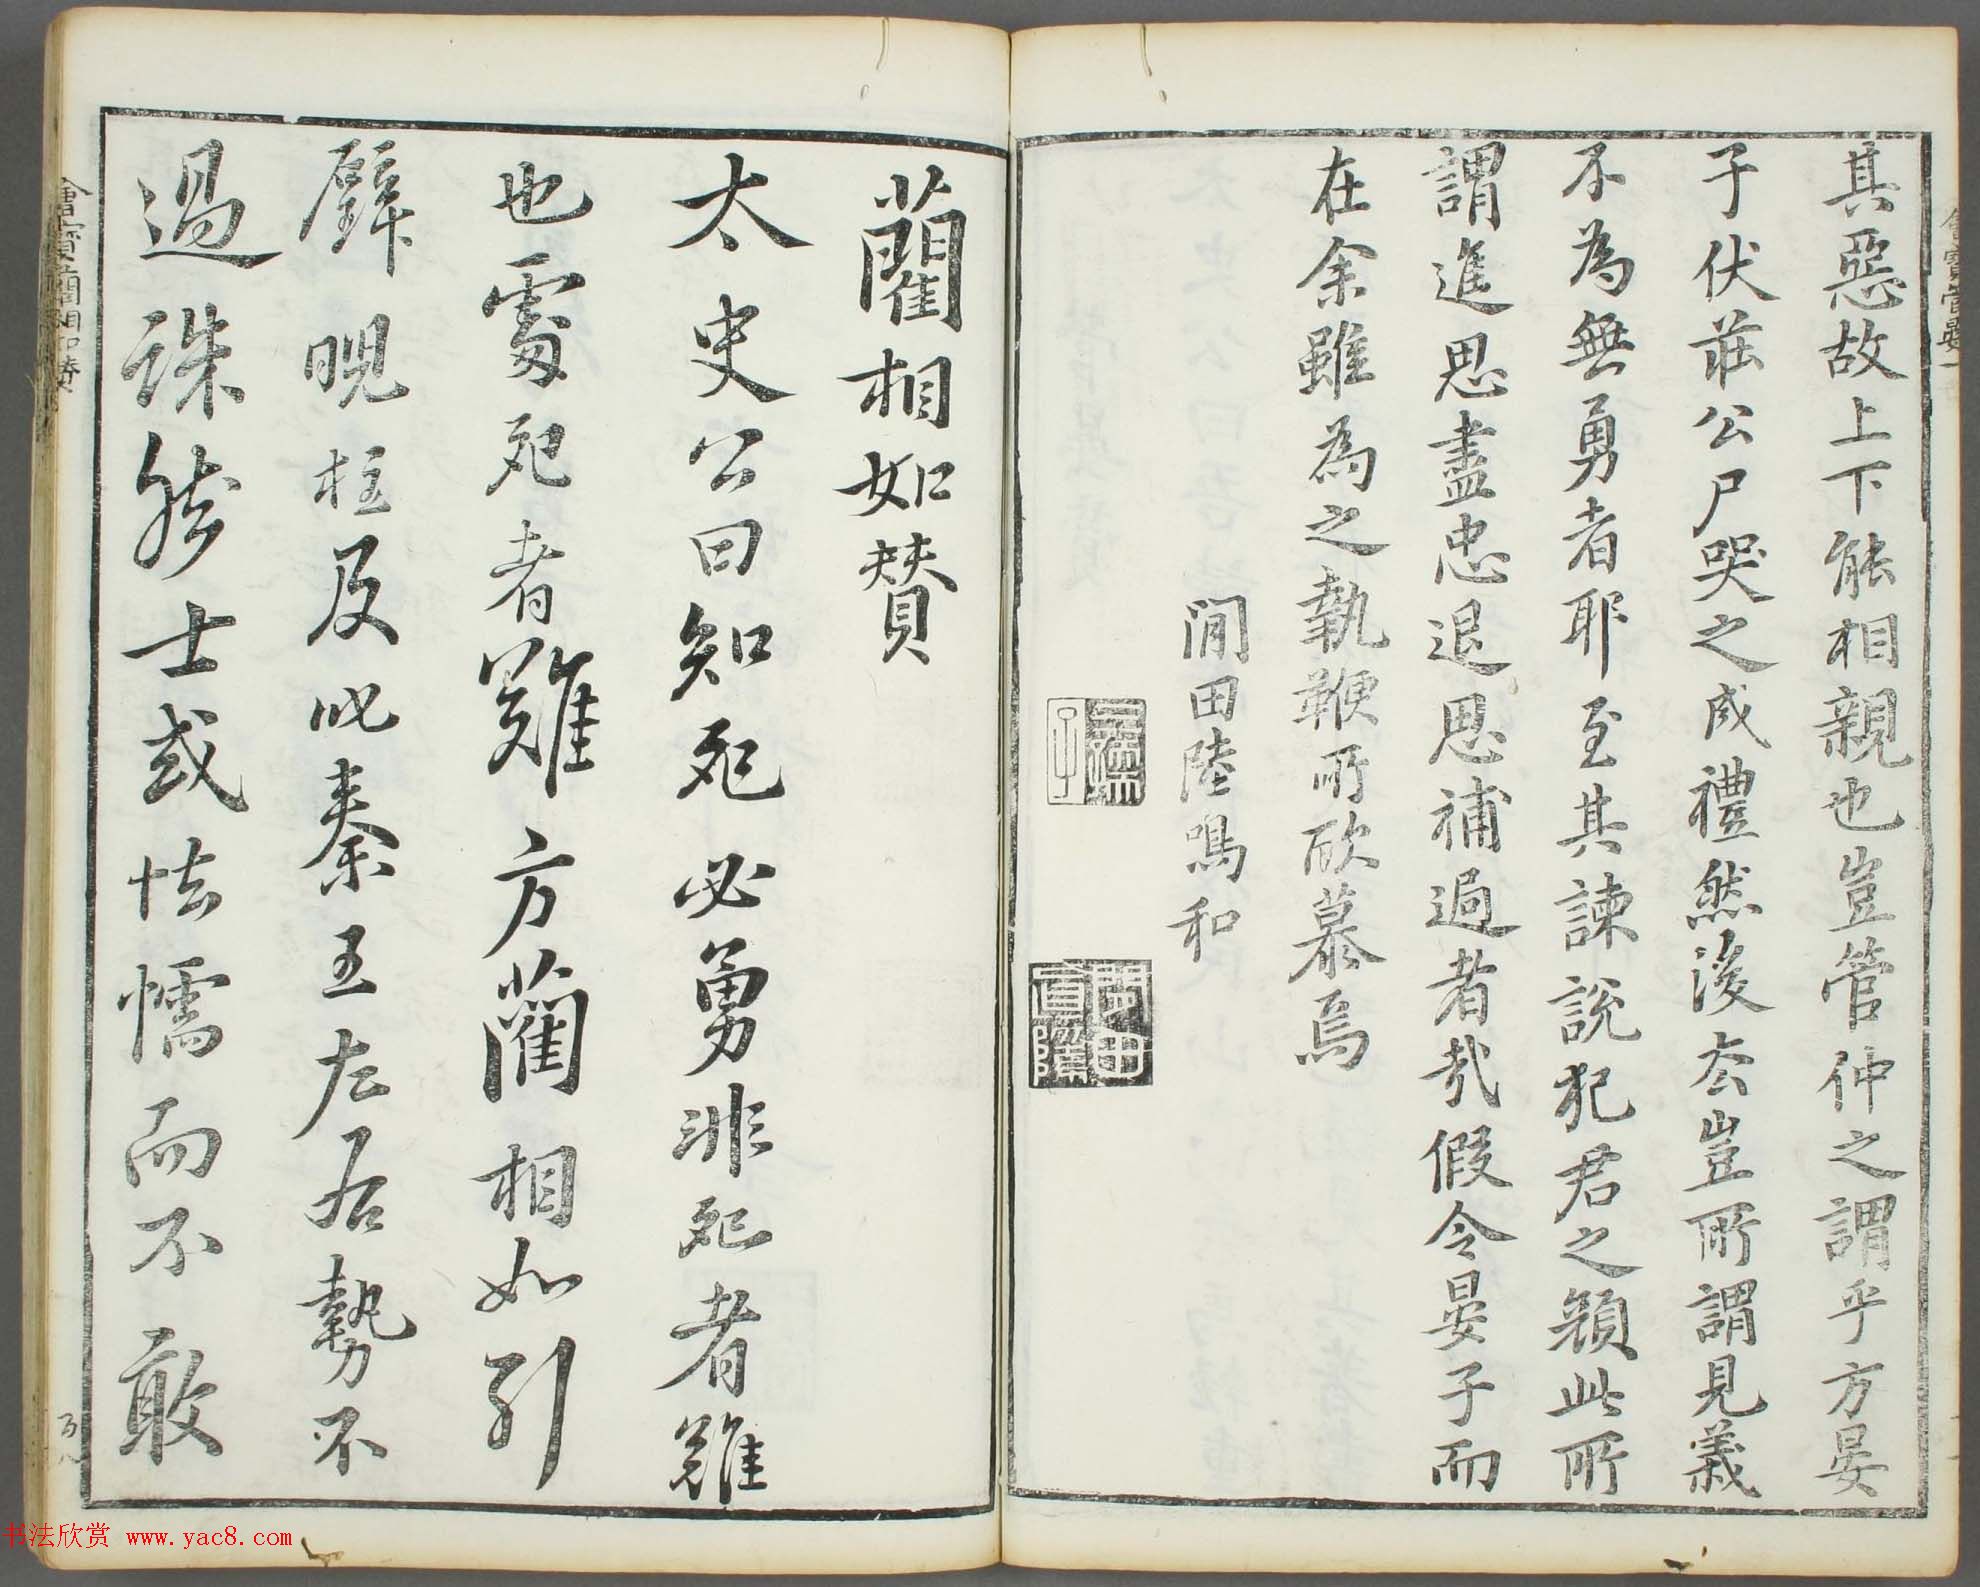 其惡故上下能相親也豈管仲之謂乎方晏
子伏莊公尸哭之成禮然後去豈所謂見義
不為無勇者耶至其諫說犯君之顏此所
謂進思盡忠退思補過者哉假令晏子而
在余雖為之執鞭所歆慕焉
閒田陸鳴和
藺相如贊
太史公曰知死必勇非死者難
也處死者難方藺相如引
璧睨柱及叱秦王左右勢不
過誅然士或怯懦而不敢
书法欣赏 www.yac8.com